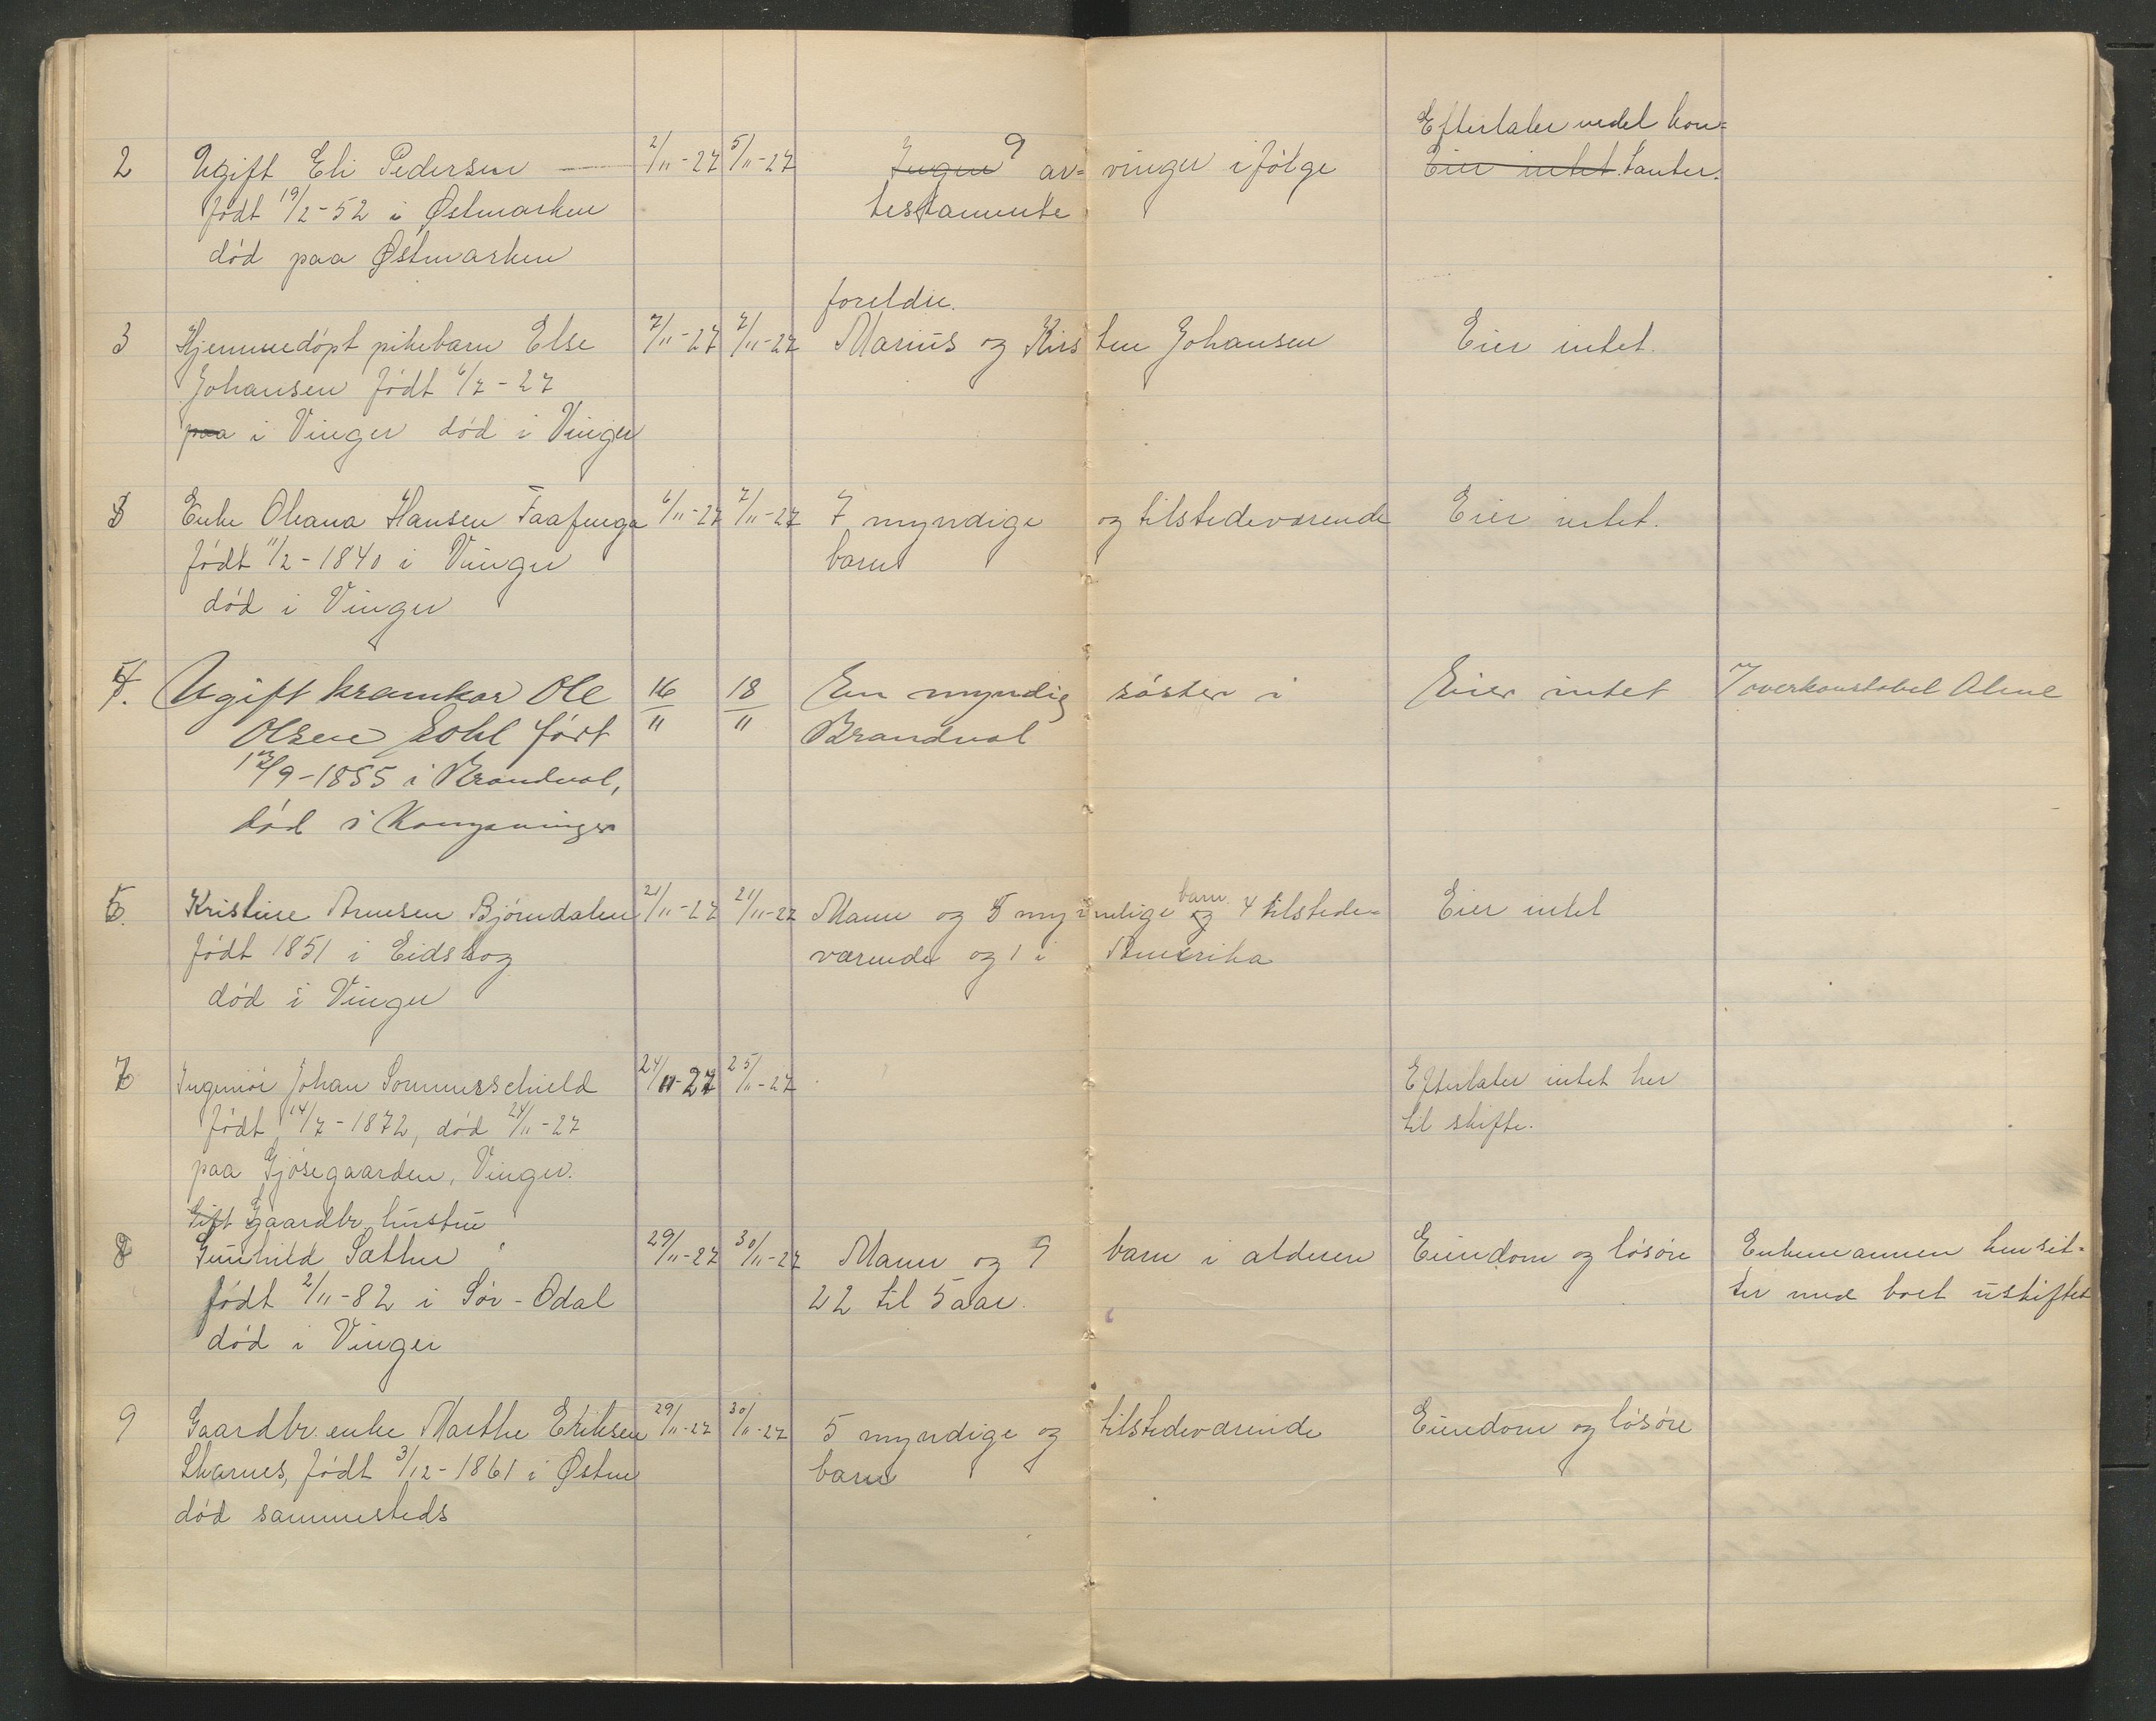 Efterlater vedel kon=
2 Ugift Eli Pedersen — 2/11-27 5/11-27 Ingen 9 ar= vinger ifølge Eier intet. tanter.
født 19/2-52 i Østmarken testamente
død paa Østmarken
foreldre.
3 Hjemmedøpt pikebarn Else 7/11-27 7/11-27 Marius og Kirsten Johansen Eier intet.
Johansen født 6/7-27
paa i Vinger død i Vinger
Enke Oleana Hansen Faafenga 6/11-27 7/11-27 7 myndige og tilstedeværende Eier intet.
født 11/2-1840 i Vinger barn
død i Vinger
Ugift kramkar Ole 16/11 18/11 En myndig søster i Eier intet overkonstabel
Olsen født Brandval
/9-1855 i Brandval,
død i Kongsvinger
Kristine Arnesen Bjørndalen 21/11-27 21/11-27 Mann og 5 myndige barn og 4 tilstede=
født 1851 i Eidskog værende og 1 i Amerika Eier intet
død i Vinger
7 Ingeniør Johan Sommerschield 24/11-27 25/11-27 Efterlater intet her
født 14/7-1872, død 24/11-27 til skifte.
paa Gjøsegaarden, Vinger.
Gift Gaardbr. hustru
8 Gunhild Sæther 29/11-27 30/11-27 Mann og 9 barn i alderen Eiendom og løsøre Enkemannen hensit=
født 2/11-82 i Sør-Odal 22 til 5 aar. ter med boet uskiftet
død i Vinger
9 Gaardbr. enke Marthe Eriksen 29/11-27 30/11-27 5 myndige og tilstedeværende Eiendom og løsøre
Skarnes, født 3/12-1861 i Østm barn
død sammesteds